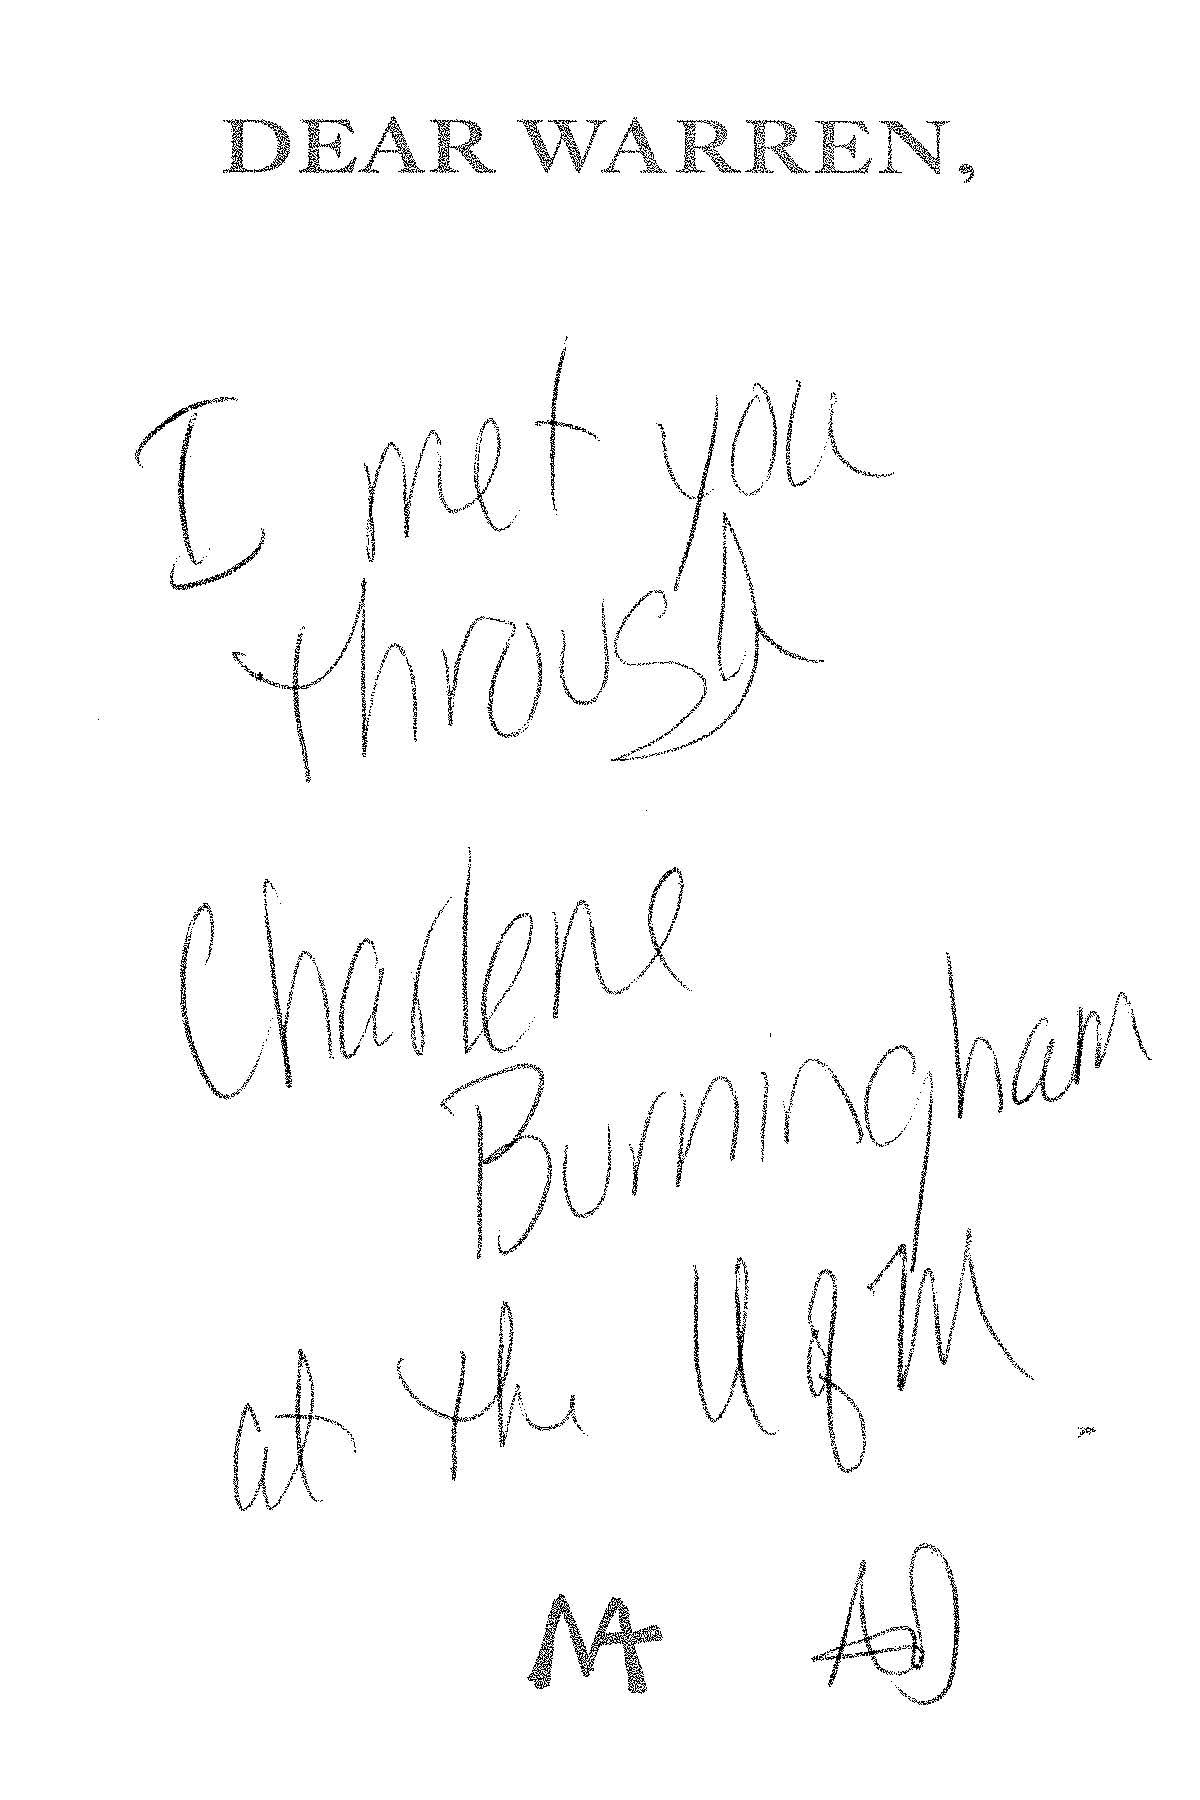 DEAR WARREN,
I met you
through
Charlene
Burningham
at the U of M